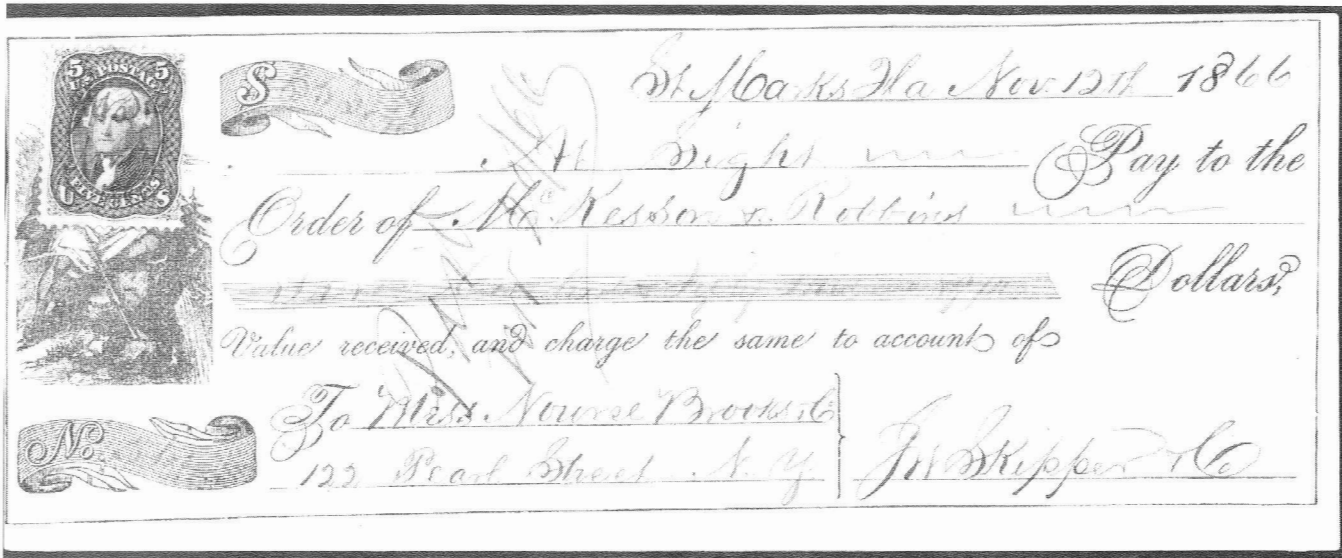 5 U.S. POSTAGE 5
U FIVE CENTS S
$
St. Marks Fla Nov. 12th 1866
At Sight Pay to the
Order of McKesson & Robbins
Dollars,
Value received, and charge the same to account of
To Mess. Nourse Brooks & Co
122 Pearl Street N.Y.
No.
JW Skipper & Co